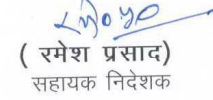 ( रमेश प्रसाद)
सहायक निदेशक